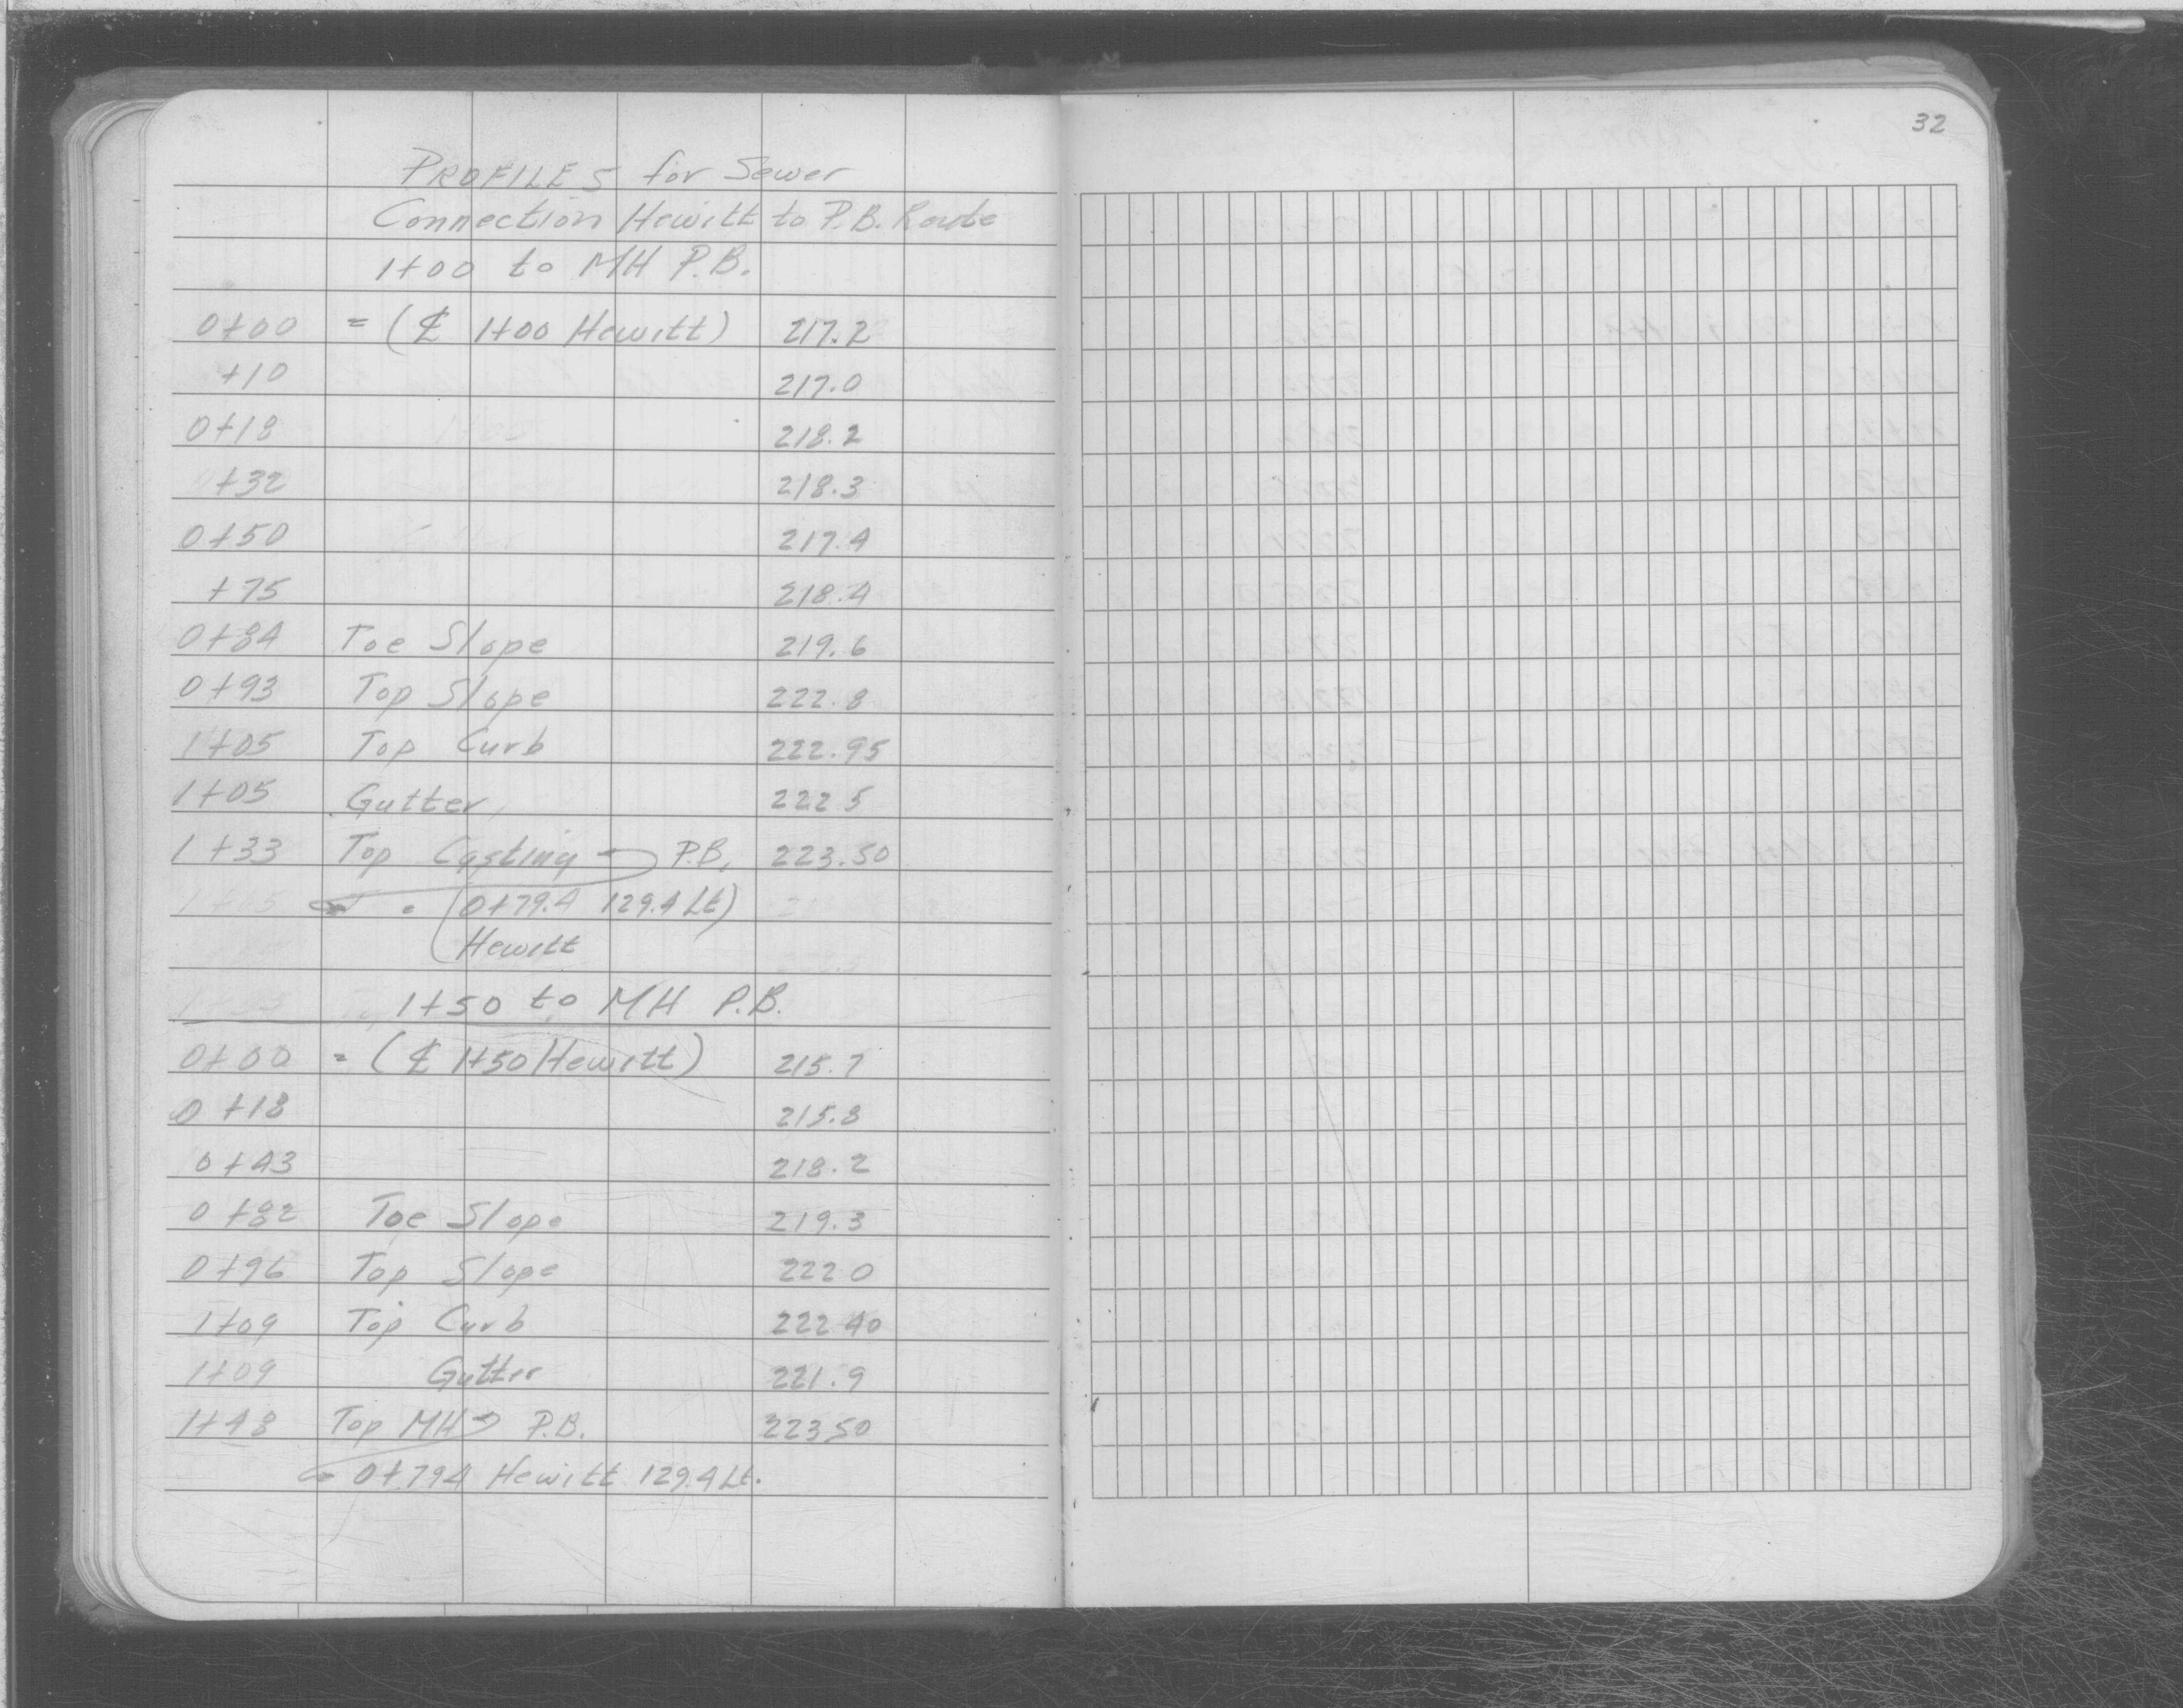 32
PROFILES for Sewer
Connection Hewitt to P.B. Route
1+00 to MH P.B.
0+00 = (℄ 1+00 Hewitt) 217.2
+10 217.0
0+18 218.2
+32 218.3
0+50 217.4
+75 218.4
0+84 Toe Slope 219.6
0+93 Top Slope 222.8
1+05 Top Curb 222.95
1+05 Gutter 222.5
1+33 Top Casting P.B. 223.50
= (0+79.4 129.4 Lt)
Hewitt
1+50 to MH P.B.
0+00 = (℄ 1+50 Hewitt) 215.7
0+18 215.8
0+43 218.2
0+82 Toe Slope 219.3
0+96 Top Slope 222.0
1+09 Top Curb 222.40
1+09 Gutter 221.9
1+48 Top MH P.B. 223.50
= 0+79.4 Hewitt 129.4 Lt.